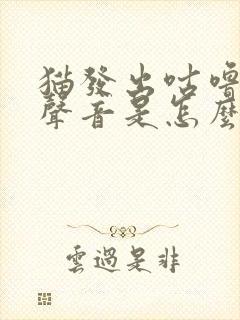 猫發出咕嚕
聲音是怎麼
雲過是非